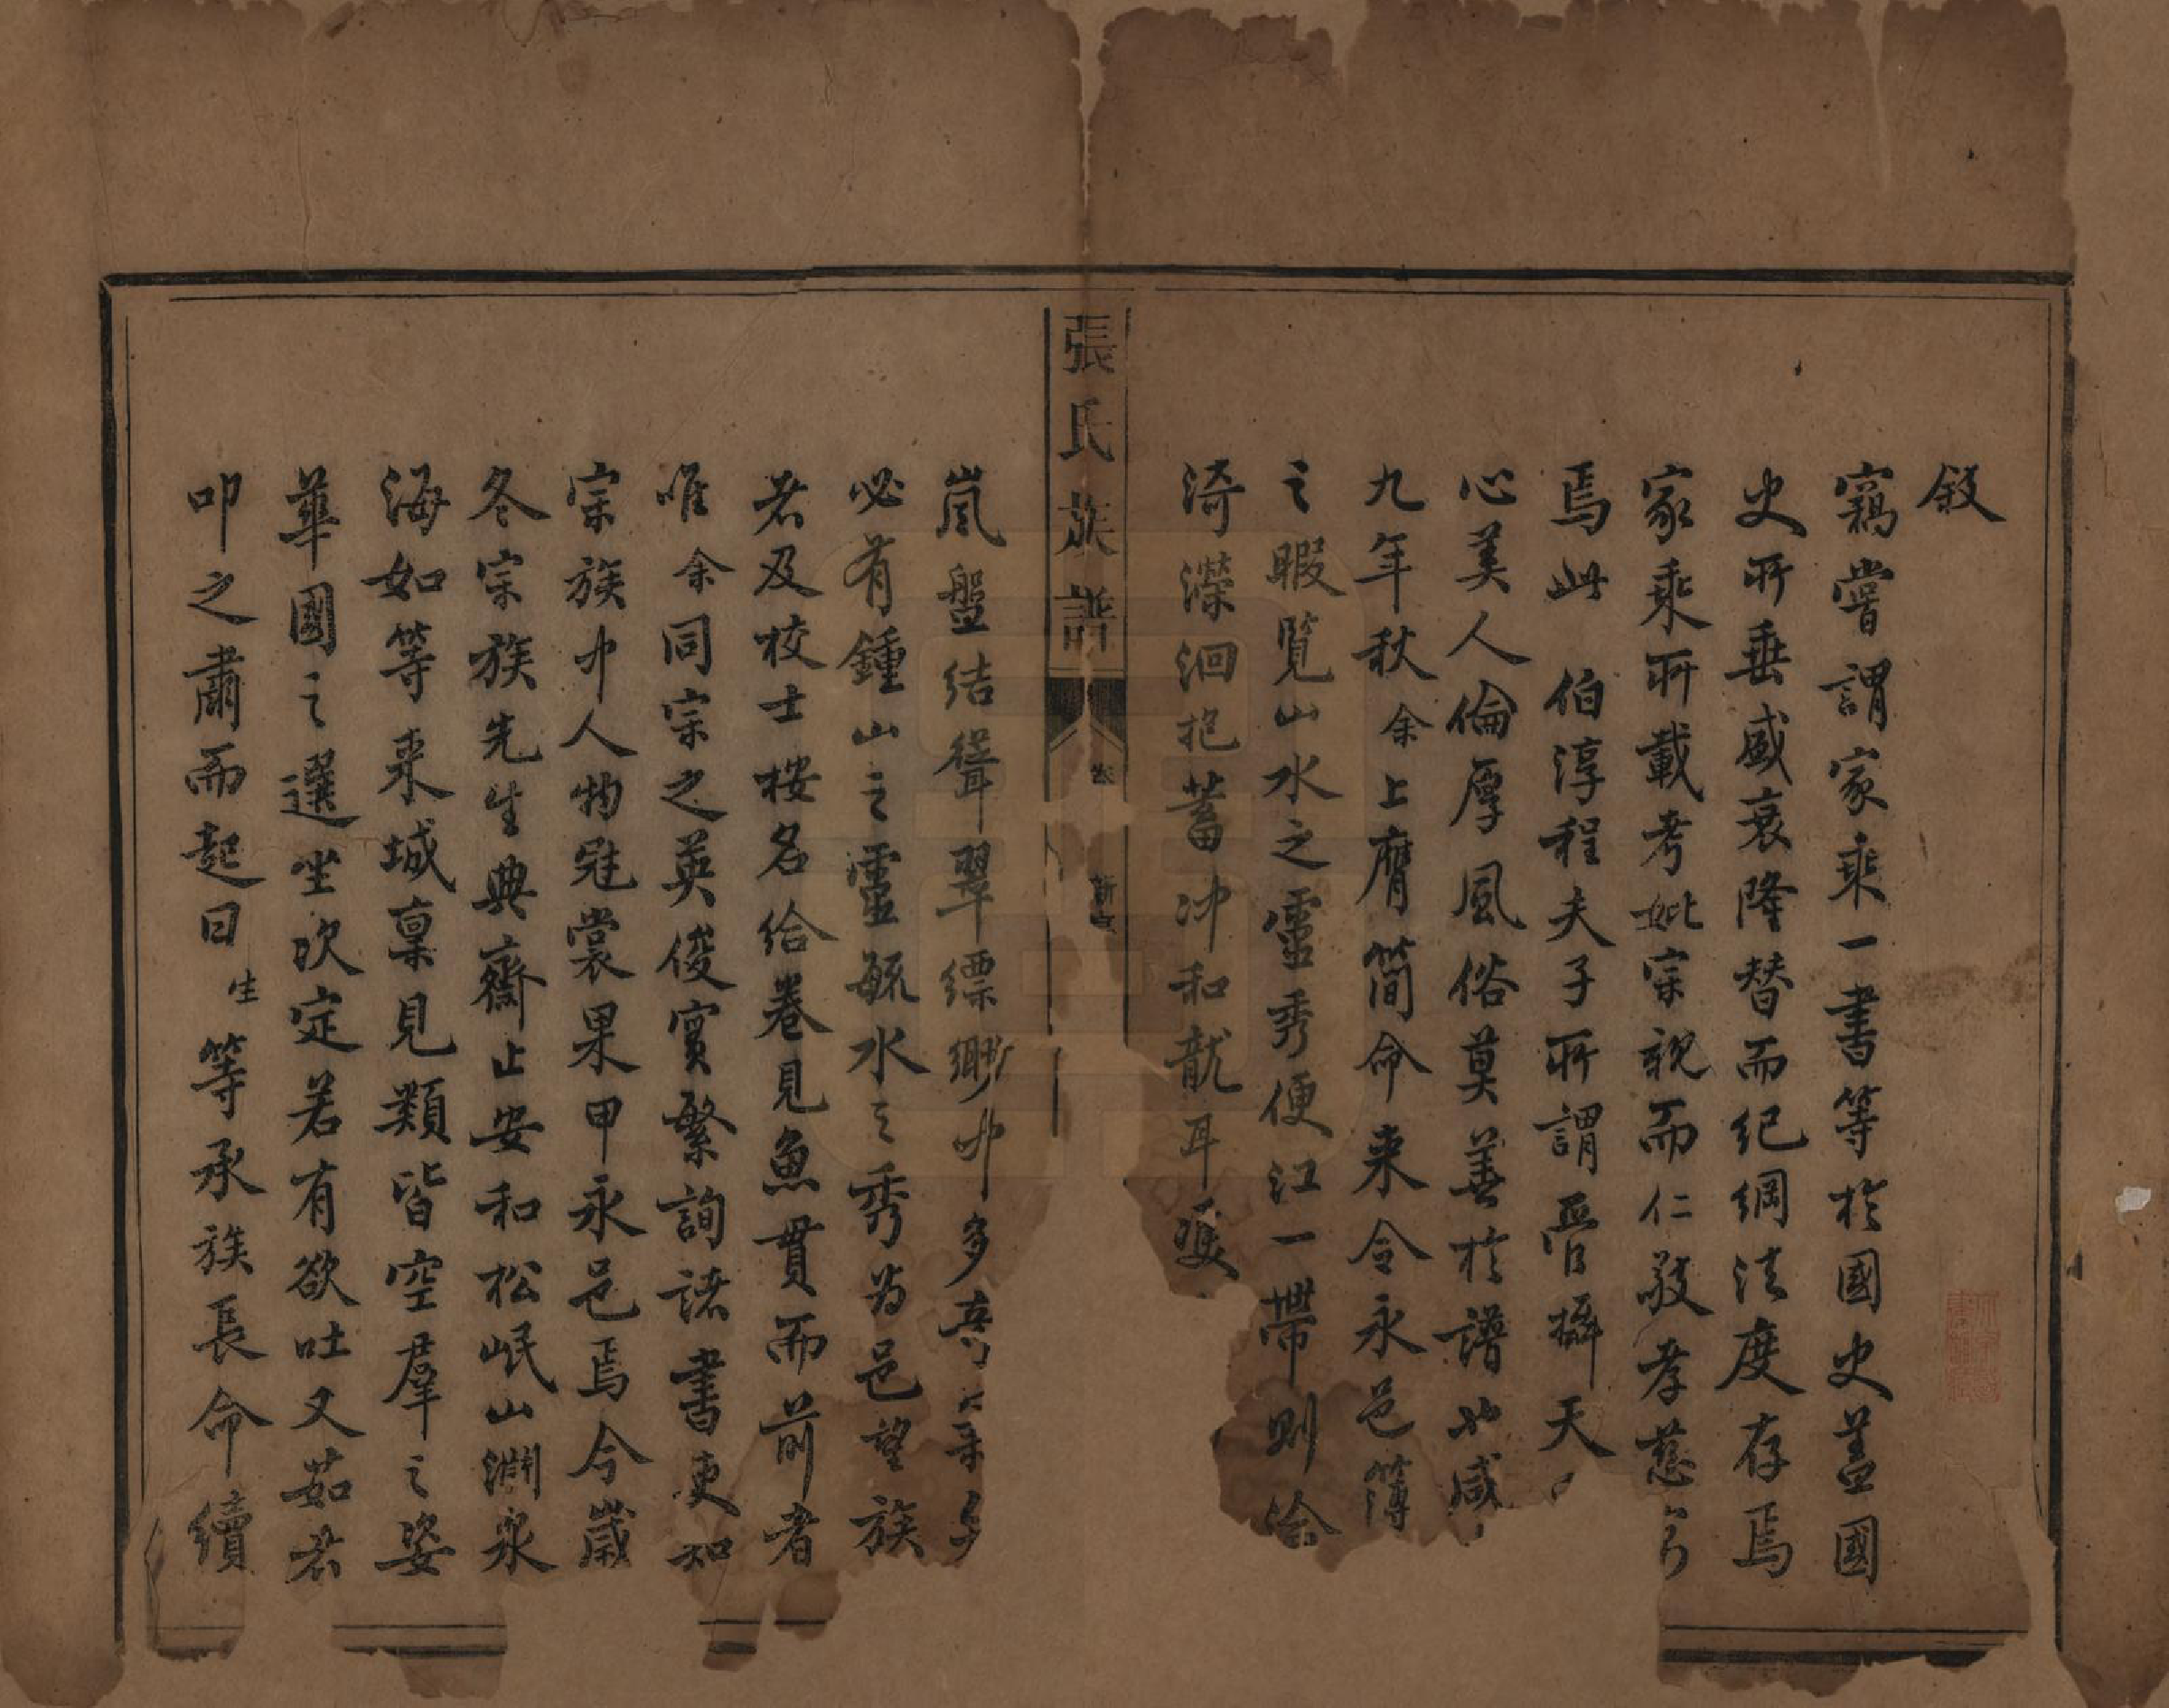 叙
竊嘗謂家乘一書等於國史盖國
史所垂盛衰隆替而紀綱法度存焉
家乘所載考妣宗親而仁敬孝慈
焉此 伯淳程夫子所謂管攝天
心美人倫厚風俗莫善於譜也咸
九年秋余上膺簡命来令永邑簿
之暇覧山水之靈秀便江一帶則淦
漪濴洄抱蓄冲和龍耳雙
張氏族譜
卷
嵐盤結聳翠縹緲中多
必有鍾山之靈毓水之秀為邑望族
者及校士按名給卷見魚貫而前者
唯余同宗之英俊實繁詢諸書吏知
宗族中人物冠裳果甲永邑焉今歲
冬宗族先生典齋止安和松岷山淵泉
海如等来城稟見類皆空羣之姿
華國之選坐次定若有欲吐又茹者
叩之肅而起曰生等承族長命續